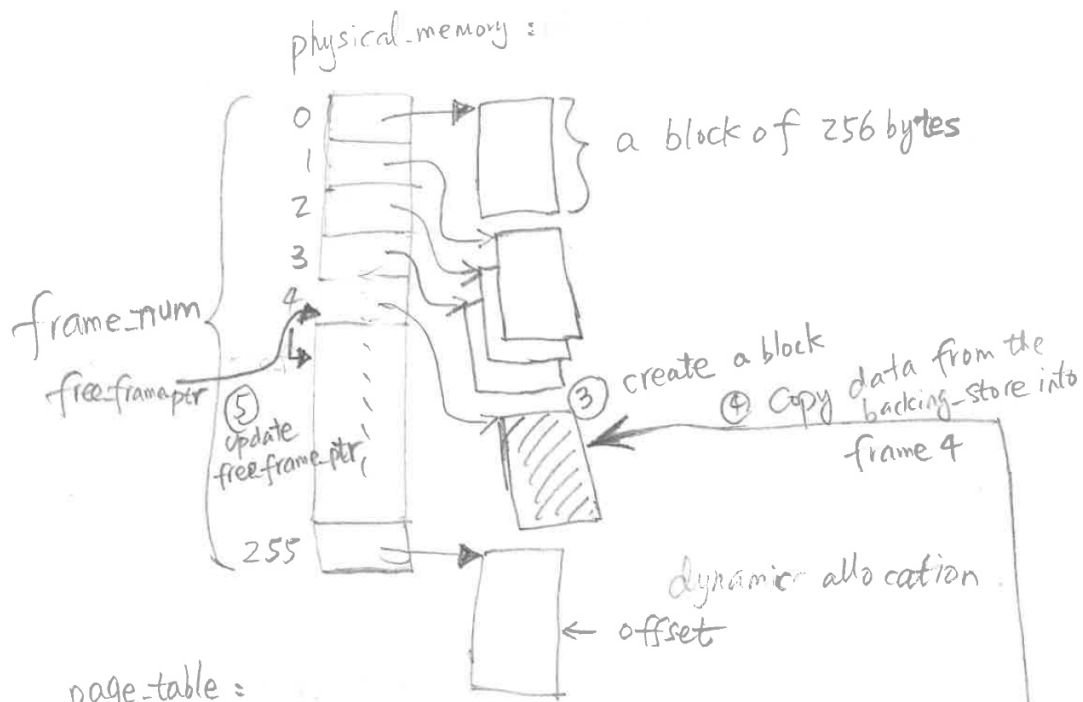 physical_memory :
0
1
2
3
4
255
a block of 256 bytes
frame_num
free_frame_ptr
⑤
update
free_frame_ptr
③ create a block
④ Copy data from the
backing_store into
frame 4
dynamic allocation
offset
page_table :